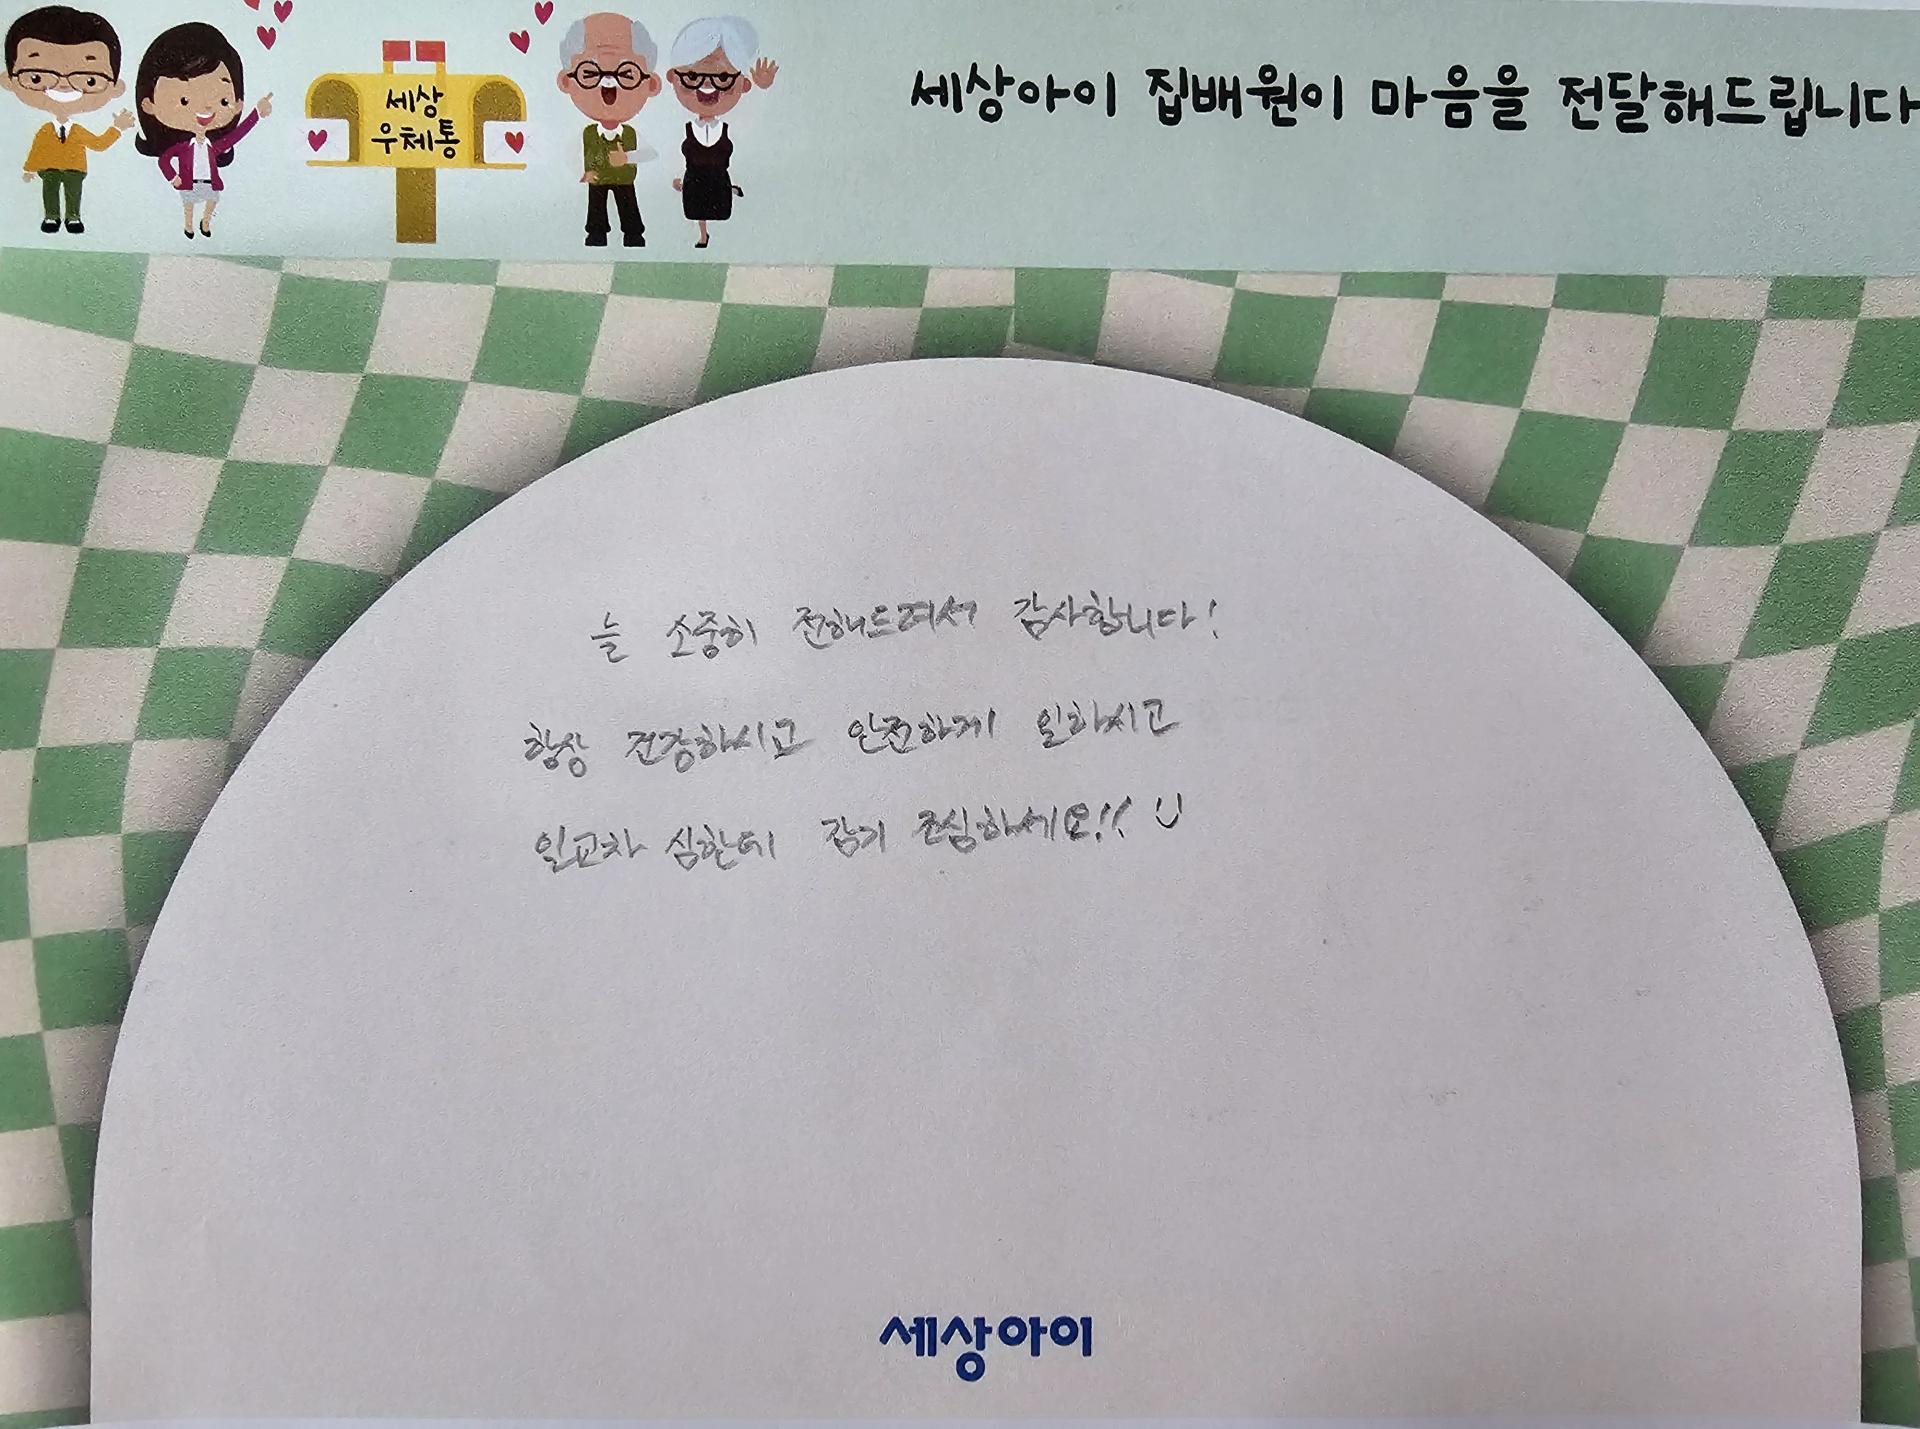 세상
우체통
세상아이 집배원이 마음을 전달해드립니다
늘 소중히 전해드여서 감사합니다!
항상 건강하시고 안전하게 일하시고
일교차 심한데 감기 조심하세요!!
세상아이